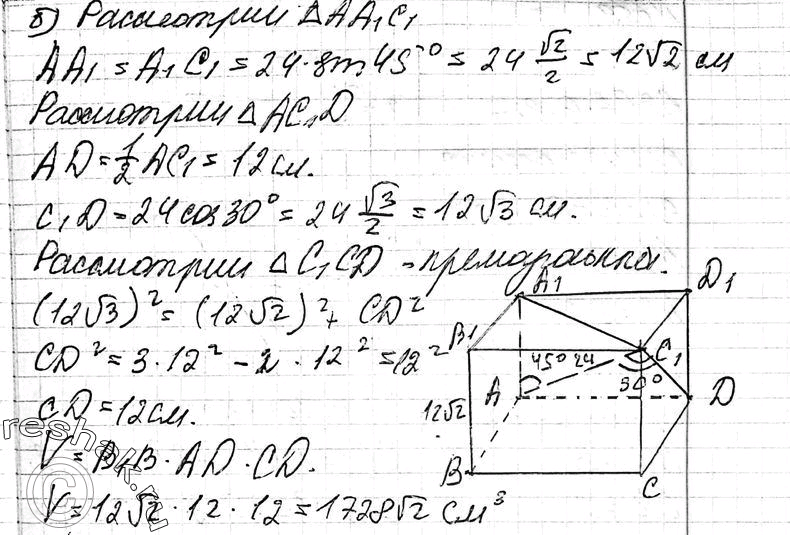 б) Рассмотрим △AA₁C₁
AA₁ = A₁C₁ = 24·sin45° = 24 √2/2 = 12√2 см
Рассмотрим △AC₁D
AD = 1/2 AC₁ = 12см.
C₁D = 24cos30° = 24 √3/2 = 12√3 см.
Рассмотрим △C₁CD -
(12√3)² = (12√2)² + CD²
CD² = 3·12² - 2·12² = 12²
CD = 12см.
V = B₁B·AD·CD.
V = 12√2·12·12 = 1728√2 см³
A₁
D₁
B₁
C₁
45°
24
30°
A
D
12√2
B
C
reshak.ru
©